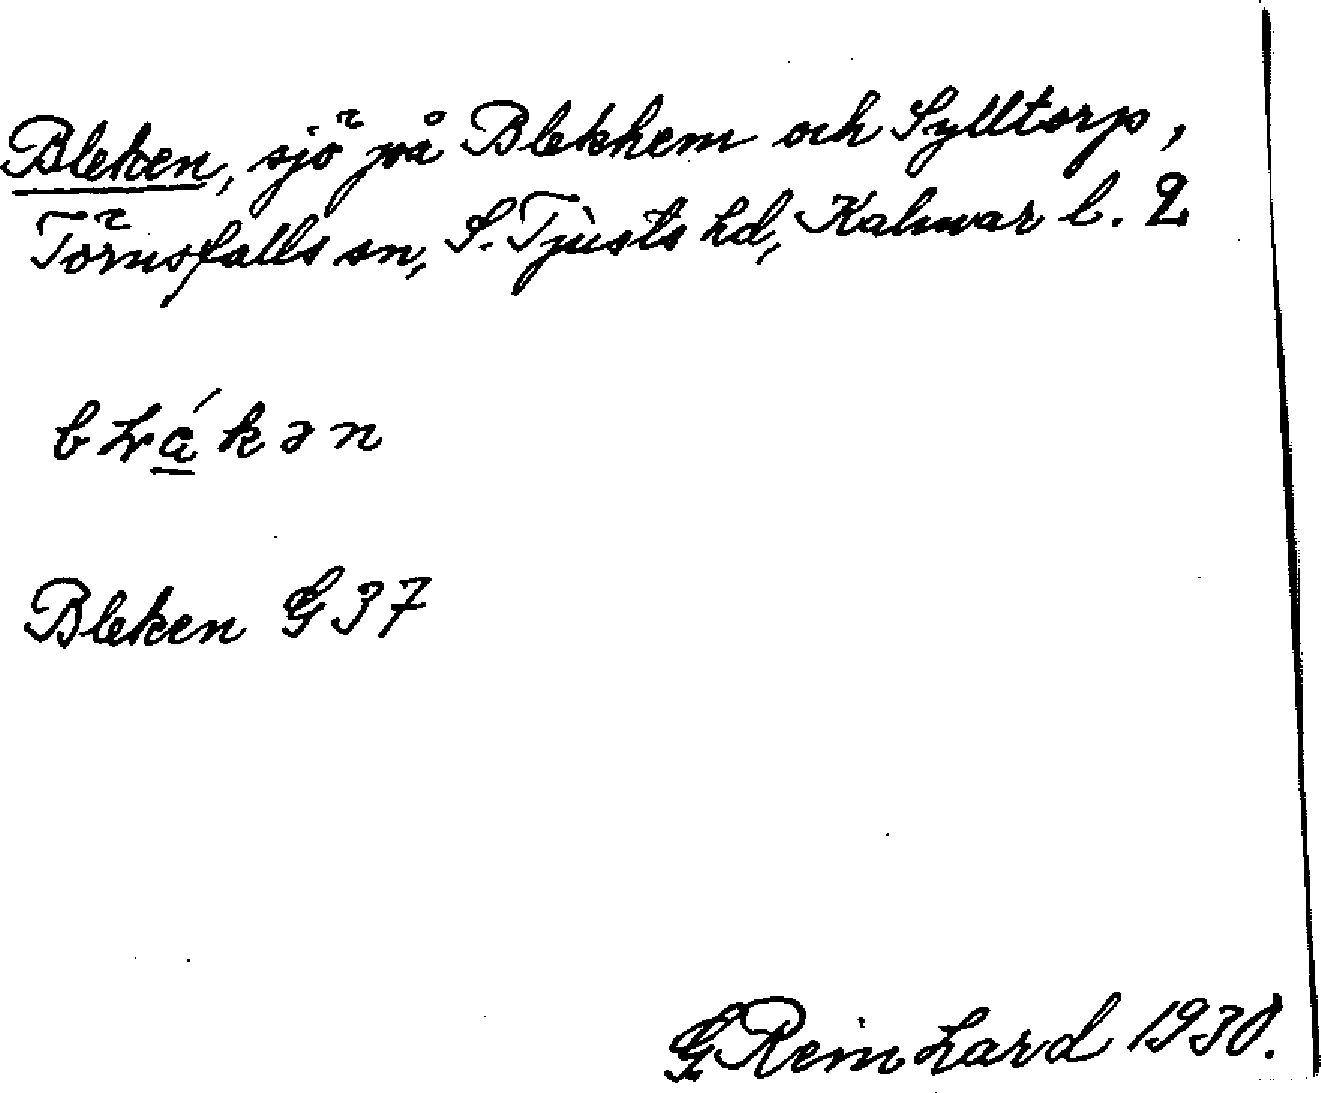 Bleken, sjö på Blekhem och Sylltorp,
Törnsfalls sn, S. Tjusts hd, Kalmar l. 2
Bleken G 37
G Reinhard 1930.